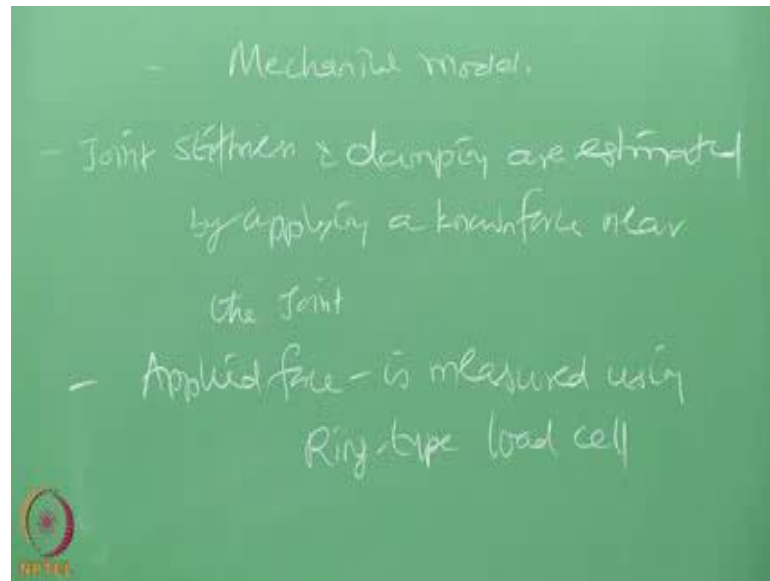 - Mechanical model.
- Joint stiffness & damping are estimated
by applying a known force near
the Joint
- Applied force - is measured using
Ring-type load cell
NPTEL